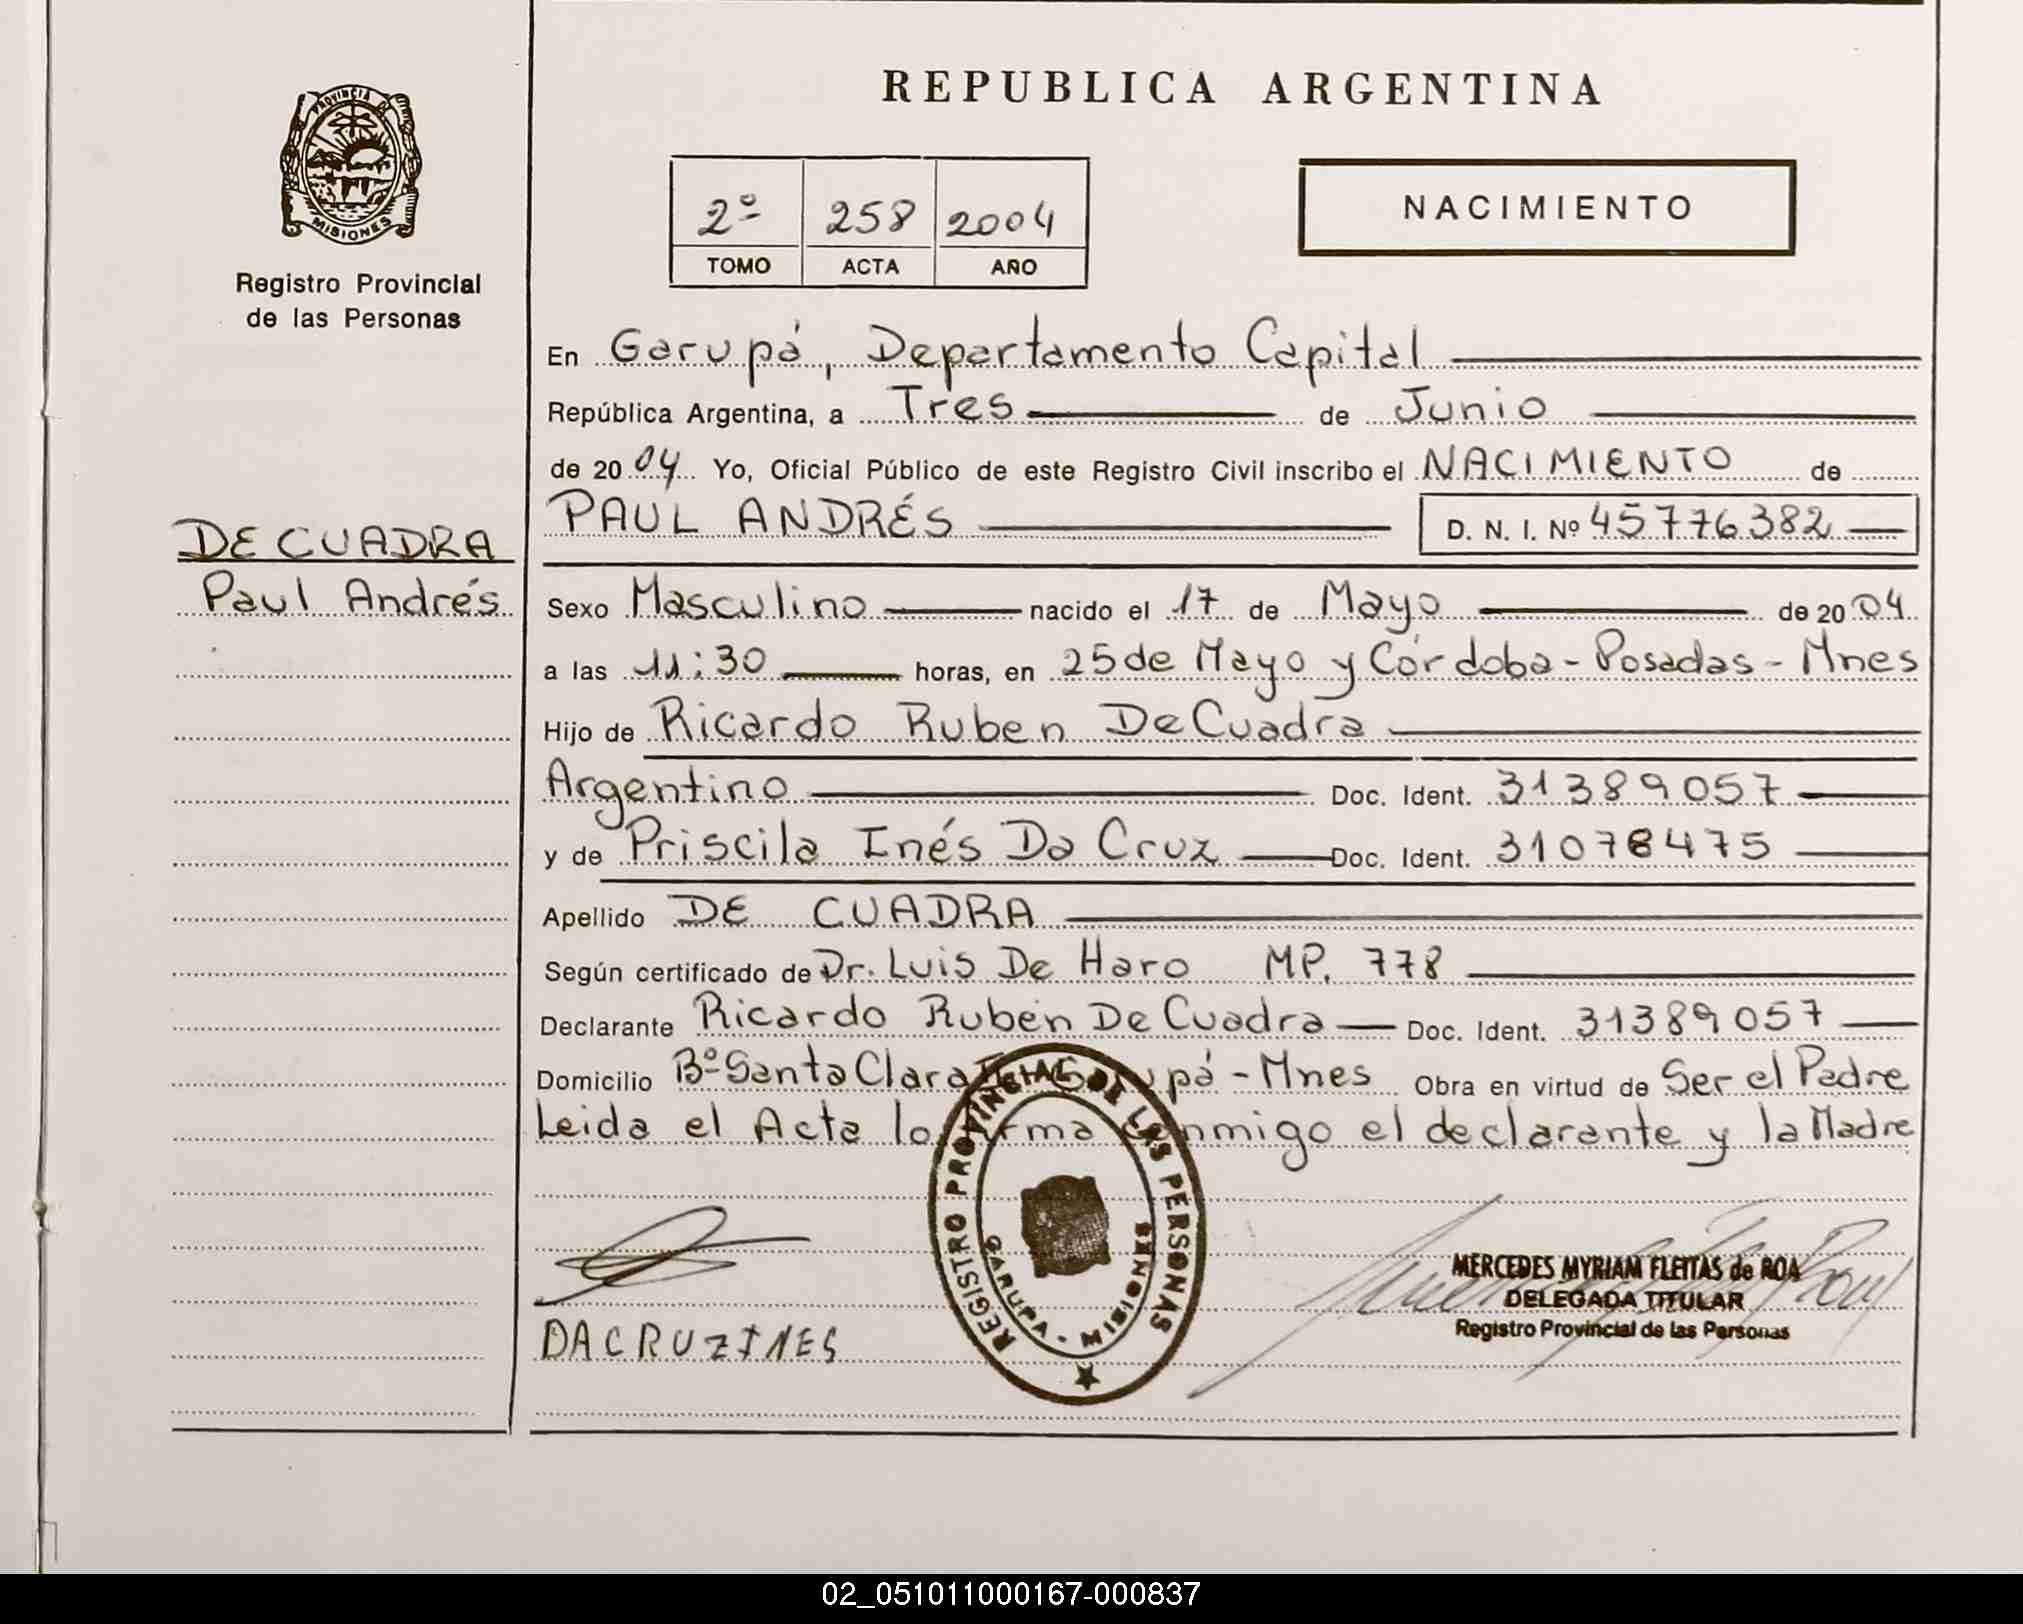 REPUBLICA ARGENTINA
PROVINCIA DE
MISIONES
Registro Provincial
de las Personas
2º 258 2004
TOMO ACTA AÑO
NACIMIENTO
En Garupá, Departamento Capital
República Argentina, a Tres de Junio
de 2004 Yo, Oficial Público de este Registro Civil inscribo el NACIMIENTO de
PAUL ANDRÉS D. N. I. Nº 45776382
DE CUADRA
Paul Andrés
Sexo Masculino nacido el 17 de Mayo de 2004
a las 11:30 horas, en 25 de Mayo y Córdoba - Posadas - Mnes
Hijo de Ricardo Ruben De Cuadra
Argentino Doc. Ident. 31389057
y de Priscila Inés Da Cruz Doc. Ident. 31078475
Apellido DE CUADRA
Según certificado de Dr. Luis De Haro MP. 778
Declarante Ricardo Rubén De Cuadra Doc. Ident. 31389057
Domicilio Bº Santa Clara Garupá - Mnes Obra en virtud de Ser el Padre
Leida el Acta lo firma conmigo el declarante y la Madre
REGISTRO PROVINCIAL DE LAS PERSONAS
GARUPA - MISIONES
MERCEDES MYRIAM FLEITAS de ROA
DELEGADA TITULAR
Registro Provincial de las Personas
DACRUZ INES
02_051011000167-000837